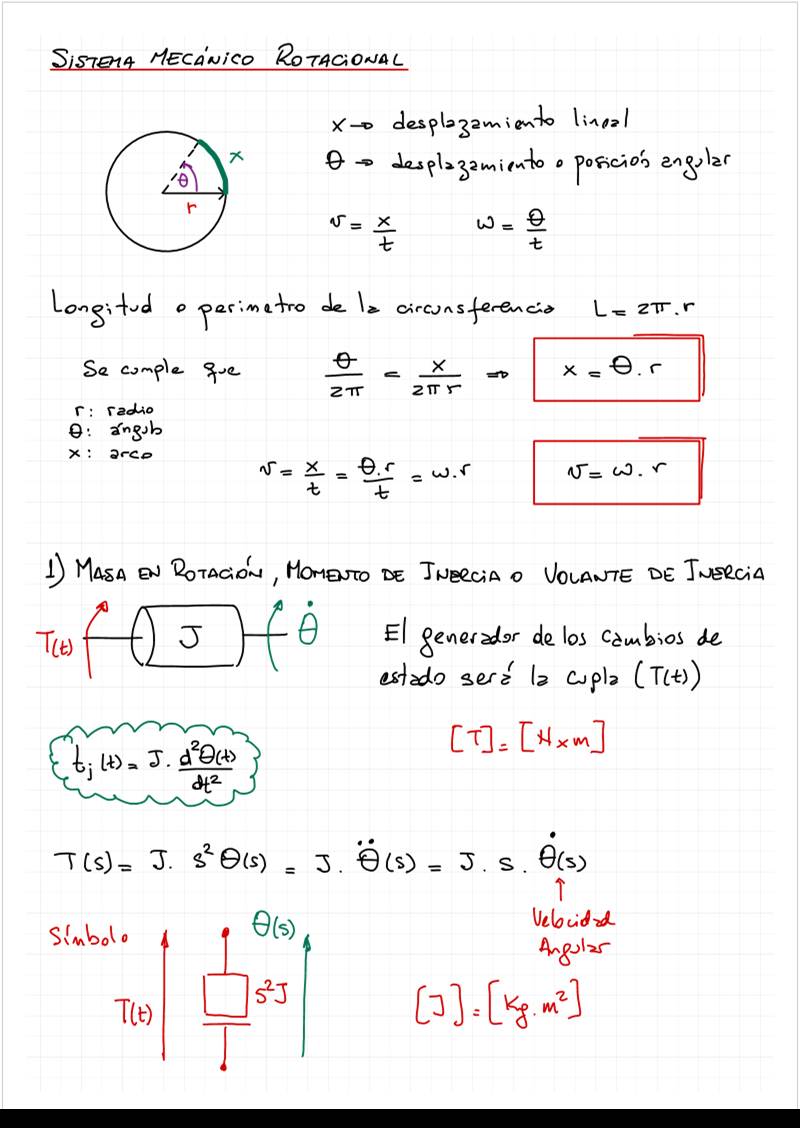 SISTEMA MECÁNICO ROTACIONAL
x → desplazamiento lineal
θ → desplazamiento o posición angular
x
θ
r
v = x/t    ω = θ/t
Longitud o perimetro de la circunsferencia L = 2π.r
Se cumple que θ/2π = x/2πr ⇒ x = θ.r
r: radio
θ: ángulo
x: arco
v = x/t = θ.r/t = ω.r    v = ω.r
1) MASA EN ROTACIÓN, MOMENTO DE INERCIA O VOLANTE DE INERCIA
T(t) J θ̇
El generador de los cambios de
estado será la cupla (T(t))
[T] = [N x m]
tj(t) = J. d²θ(t)/dt²
T(s) = J. s² θ(s) = J. θ̈(s) = J. s. θ̇(s)
Velocidad
Angular
Símbolo
θ(s)
T(t)
s²J
[J] = [Kg.m²]